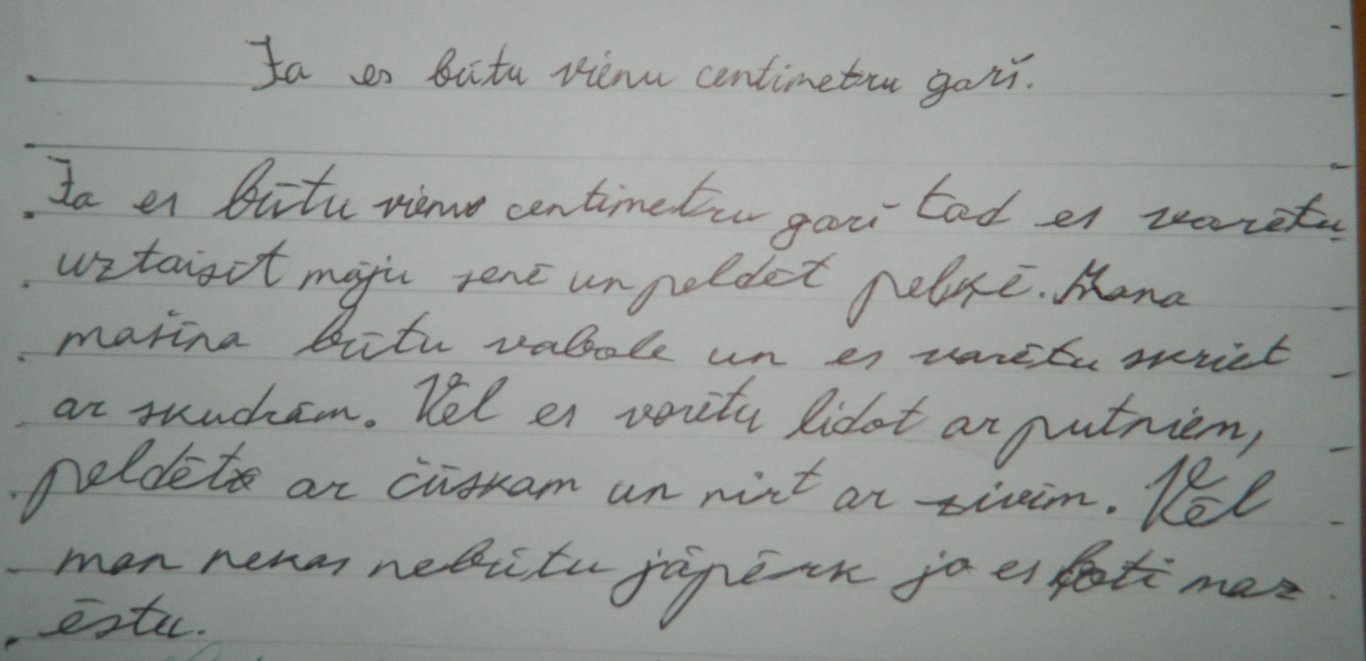 Ja es būtu vienu centimetru garš.
Ja es būtu vienu centimetru garš tad es varētu
uztaisīt māju sēnē un peldēt peļķē. Mana
mašīna būtu vabole un es varētu skriet
ar skudrām. Vēl es varētu lidot ar putniem,
peldēt ar čūskam un nirt ar zivīm. Vēl
man nekas nebūtu jāpērk jo es ļoti maz
ēstu.